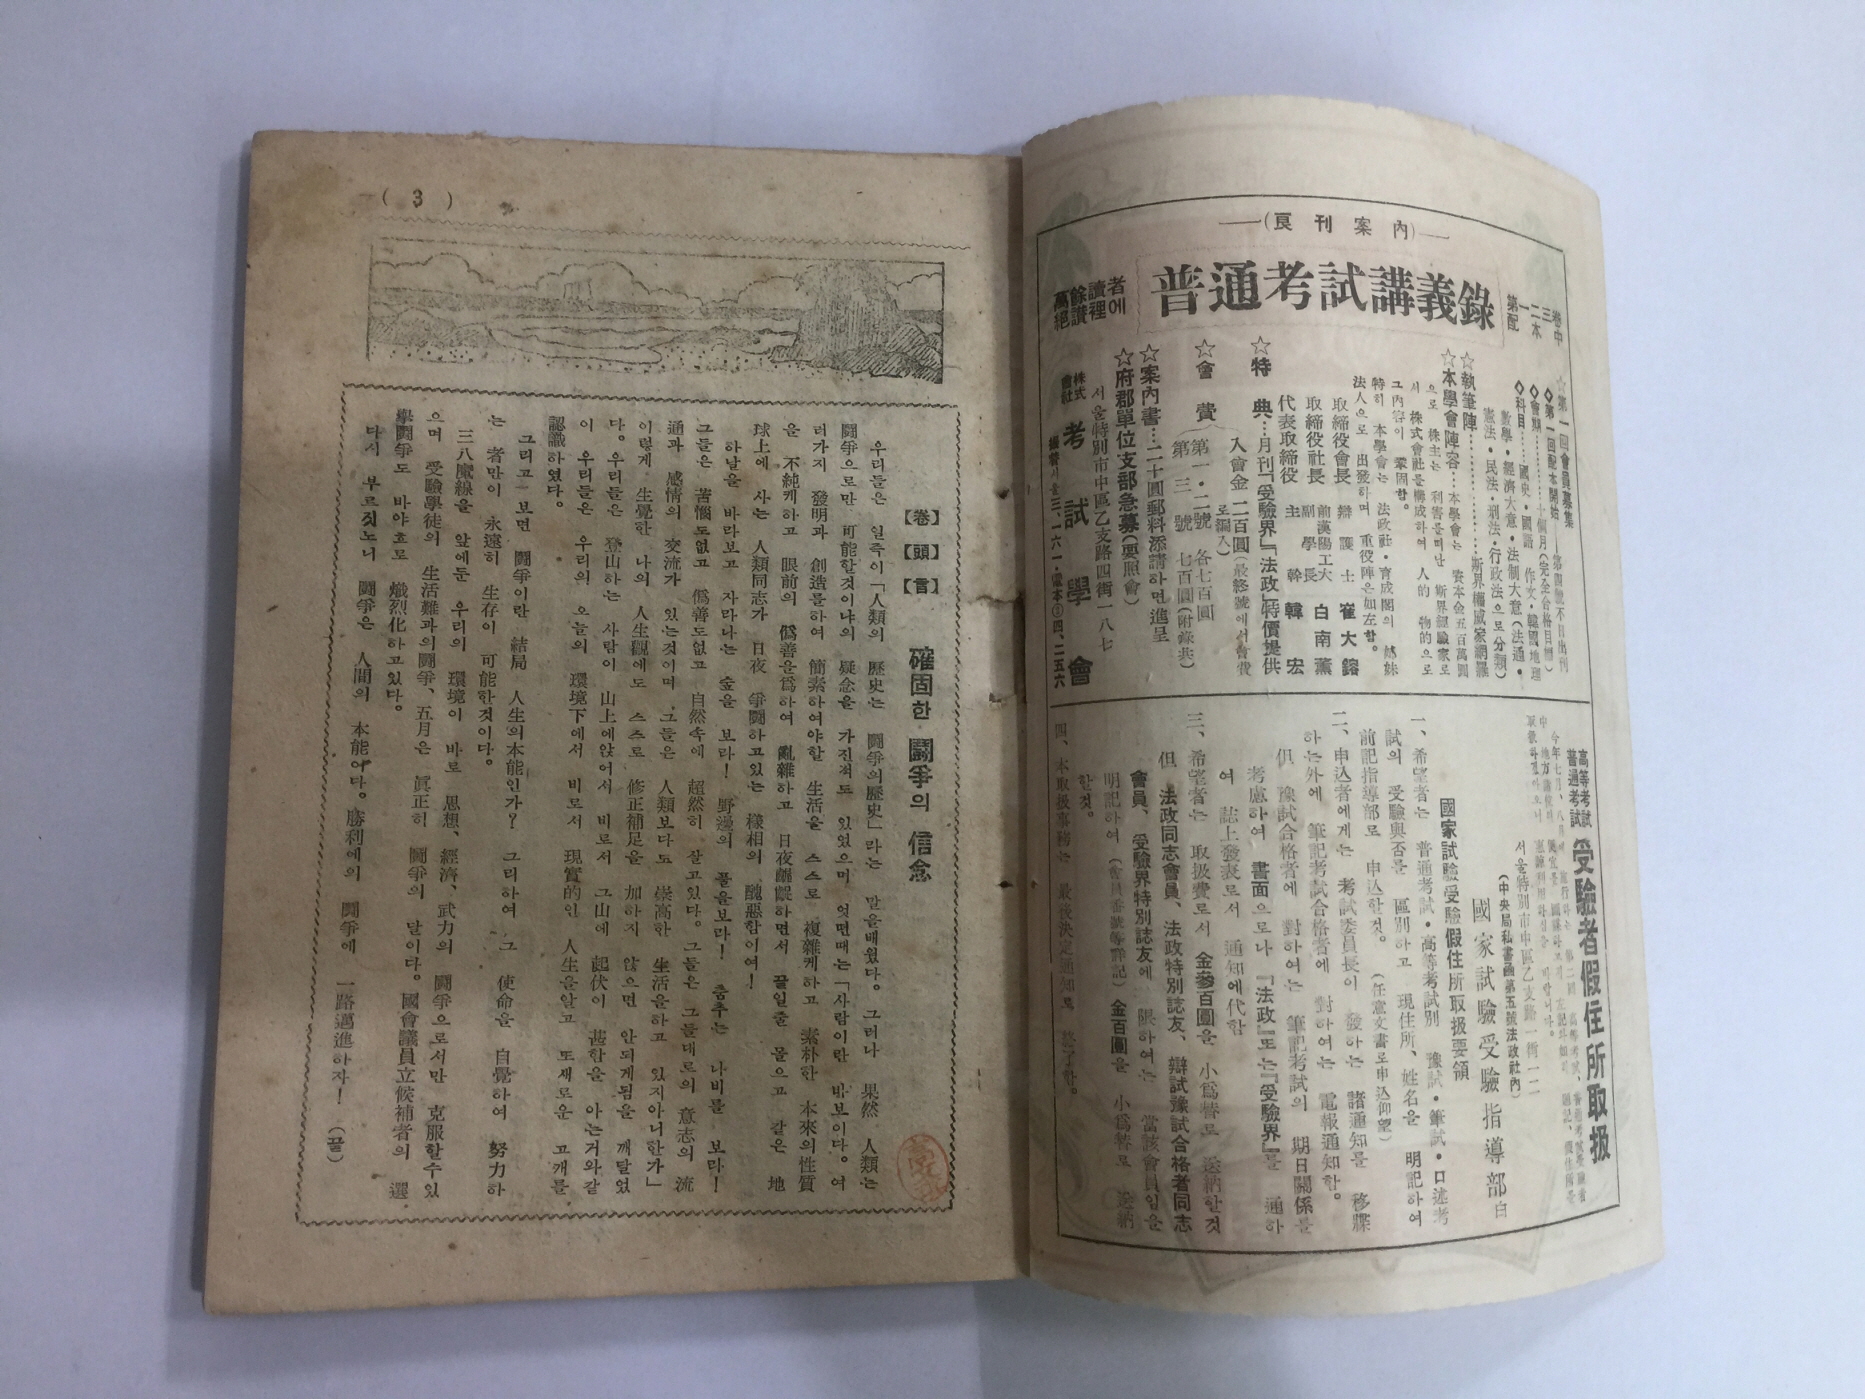 (良刊案內)
第一二三卷中
配本
普通考試講義錄
萬餘讀者에
絕讚裡
◇第一回配本開始
◇科目……國史・國語・作文・韓國地理
數學・經濟大意・法制大意(法通・
憲法・民法・刑法・行政法으로分類)
☆執筆陣…………斯界權威家網羅
☆本學會陣容…本學會는 資本金五百萬圓
으로 株主는 利害를떠난 斯界經驗家로
서 株式會社를構成하여 人的 物的으로
그內容이 鞏固함。
特히 本學會는 法政社・育成閣의 姉妹
法人으로 出發하며 重役陣은如左함。
取締役會長 辯護士 崔大鎔
取締役社長 前漢陽工大副學長 白南薰
代表取締役 主幹 韓宏
☆特典…月刊『受驗界』『法政』特價提供
入會金二百圓(最終號에서會費
로編入)
☆會費 第一・二號 各七百圓
第三號 七百圓(附錄共)
☆案內書…二十圓郵料添請하면進呈
☆府郡單位支部急募(要照會)
서울特別市中區乙支路四街一八七
株式會社 考試學會
高等考試
普通考試 受驗者假住所取扱
서울特別市中區乙支路一街一二
(中央局私書函第五號法政社內)
國家試驗受驗指導部白
國家試驗受驗假住所取扱要領
一、希望者는 普通考試・高等考試別 豫試・筆試・口述考
試의 受驗與否를 區別하고 現住所、姓名을 明記하여
前記指導部로 申込할것。 (任意文書로申込仰望)
二、申込者에게는 考試委員長이 發하는 諸通知를 移牒
하는外에 筆記考試合格者에 對하여는 電報通知함。
但 豫試合格者에 對하여는 筆記考試의 期日關係를
考慮하여 書面으로나 『法政』또는『受驗界』를 通하
여 誌上發表로서 通知에代함
三、希望者는 取扱費로서 金參百圓을 小爲替로 送納할것
但 法政同志會員、法政特別誌友、辯試豫試合格者同志
會員、受驗界特別誌友에 限하여는 當該會員임을
明記하여 (會員番號等詳記) 金百圓을 小爲替로 送納
할것。
四、本取扱事務는 最後決定通知로 終了함。
( 3 )
【卷】【頭】【言】 確固한 鬪爭의 信念
우리들은 일즉이「人類의 歷史는 鬪爭의歷史」라는 말을배웠다。그러나 果然 人類는
鬪爭으로만 可能할것이냐의 疑念을 가진적도 있었으며 엇던때는「사람이란 바보이다。여
러가지 發明과 創造를하여 簡素하여야할 生活을 스스로 複雜케하고 素朴한 本來의性質
을 不純케하고 眼前의 僞善을爲하여 亂雜하고 日夜齷齪하면서 끝일줄 몰으고 같은 地
球上에 사는 人類同志가 日夜 爭鬪하고있는 樣相의 醜惡함이여!
하날을 바라보고 자라나는 숲을 보라! 野邊의 풀을보라! 춤추는 나비를 보라!
그들은 苦惱도없고 僞善도없고 自然속에 超然히 살고있다。그들은 그들대로의 意志의 流
通과 感情의 交流가 있는것이며 그들은 人類보다도 崇高한 生活을하고 있지아니한가」
이렇게 生覺한 나의 人生觀에도 스스로 修正補足을 加하지 않으면 안되게됨을 깨달었
다。우리들은 登山하는 사람이 山上에앉어서 비로서 그山에 起伏이 甚함을 아는거와같
이 우리들은 우리의 오늘의 環境下에서 비로서 現實的인 人生을알고 또새로운 고개를
認識하였다。
그리고 보면 鬪爭이란 結局 人生의本能인가? 그리하여 그 使命을 自覺하여 努力하
는 者만이 永遠히 生存이 可能한것이다。
三八魔線을 앞에둔 우리의 環境이 바로 思想、經濟、武力의 鬪爭으로서만 克服할수있
으며 受驗學徒의 生活難과의鬪爭、五月은 眞正히 鬪爭의 달이다。國會議員立候補者의 選
擧鬪爭도 바야흐로 熾烈化하고있다。
다시 부르짓노니 鬪爭은 人間의 本能이다。勝利에의 鬪爭에 一路邁進하자! (끝)